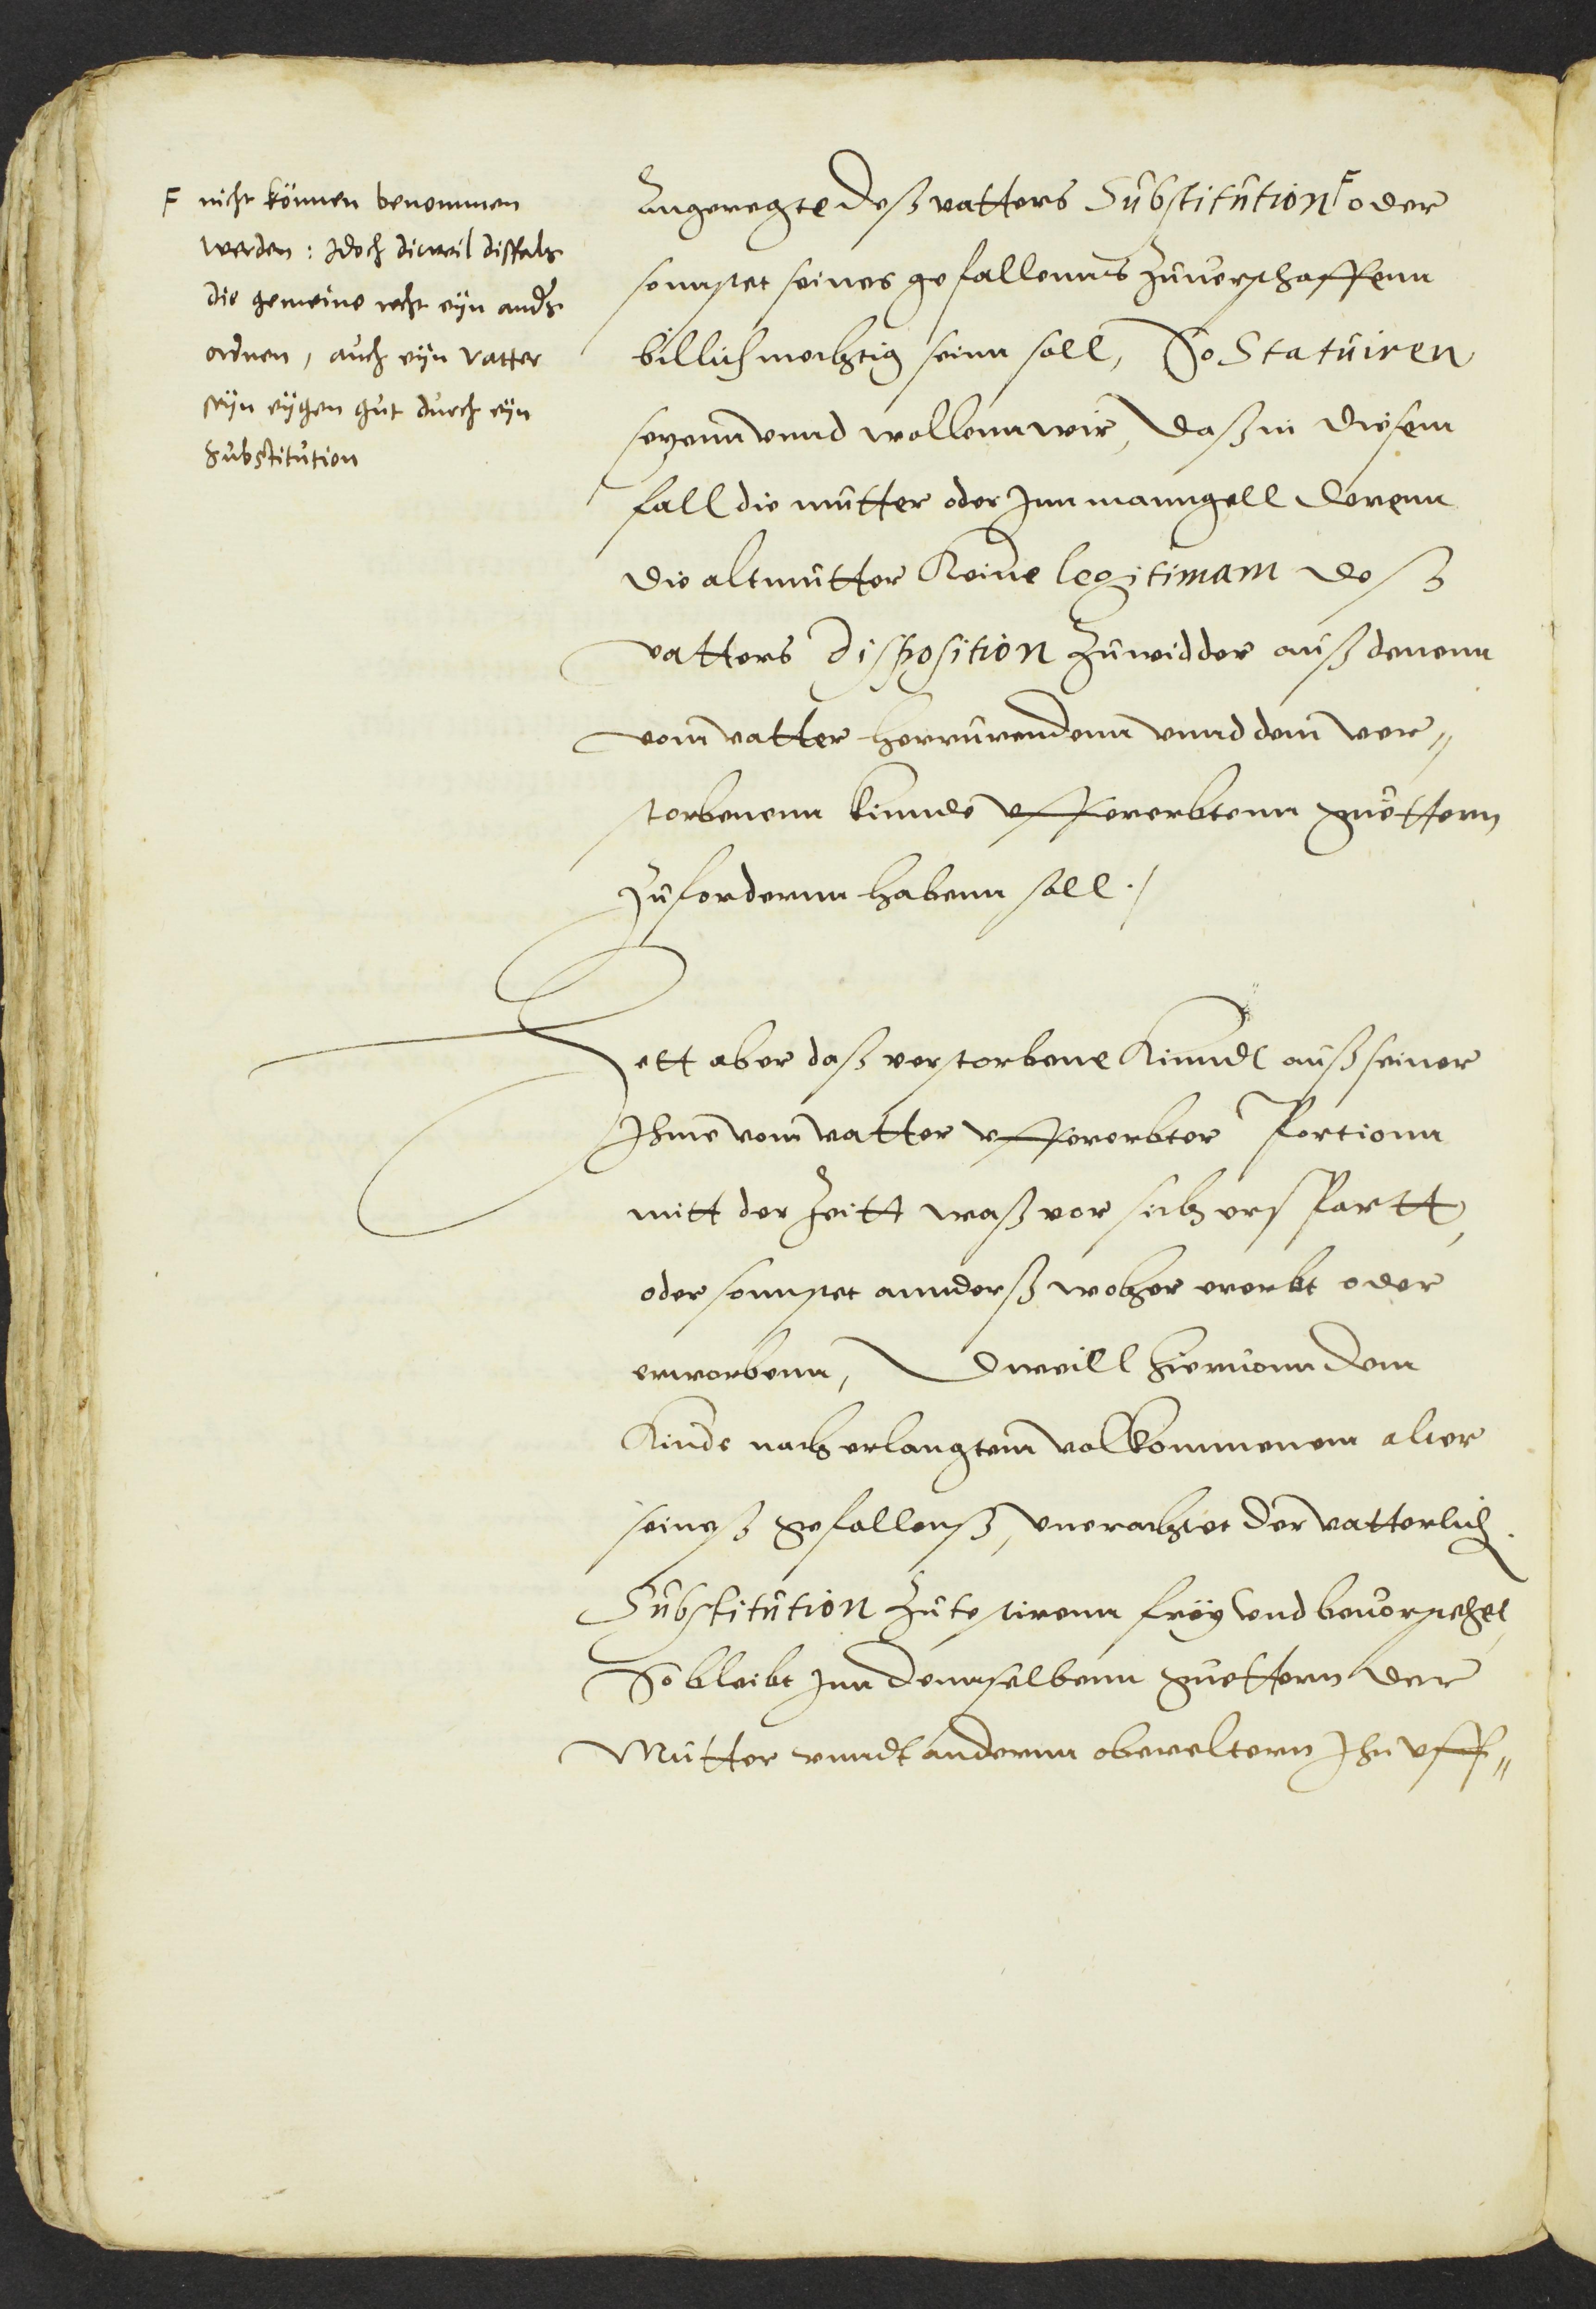 F nicht können benommen
werden: Idoch diewil disfals
die gemeine recht eyn anders
ordnen, auch eyn vatter
seyn eygen gut durch eyn
Substitution
Angeregte deß vatters Substitution F oder
sonnstet seines gefallenns zuuerschaffenn
billich mechtig seinn soll, So Statuiren
setzenn vnnd wollenn wir, daß in diesem
fall die mutter oder Inn manngell derenn
die altmutter Keine legitimam deß
vatters disposition zuwidder auß denenn
vom vatter herrurendenn vnnd dem ver„
storbenenn kinnde vffererbtenn guettern
zufordernn habenn soll./
Hett aber daß verstorbene Kinndt auß seiner
Ihme vom vatter vffererbter Portionn
mitt der Zeitt waß vor sich erspartt,
oder sonnstet annderß woher ererbt oder
erworbenn, Dweill hieruonn dem
Kinde nach erlangtem volkommenem alter
seineß gefallenß, vnerachtet der vatterlich.
Substitution zutestirenn frey vnd beuorstehet,
So bleibt Inn demselbenn guettern der
Mutter vnndt andernn obereltern Ihr vff„